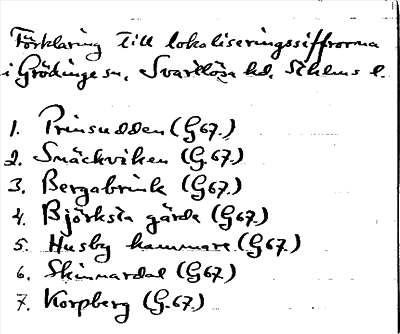 Förklaring till lokaliseringssiffrorna
i Grödinge sn, Svartlösa hd, Sthlms l.
1. Prinsudden (G67.)
2. Snäckviken (G.67.)
3. Bergabrink (G67)
4. Björksta gärde (G67)
5. Husby hammare (G67)
6. Skinnardal (G67)
7. Korpberg (G.67.)